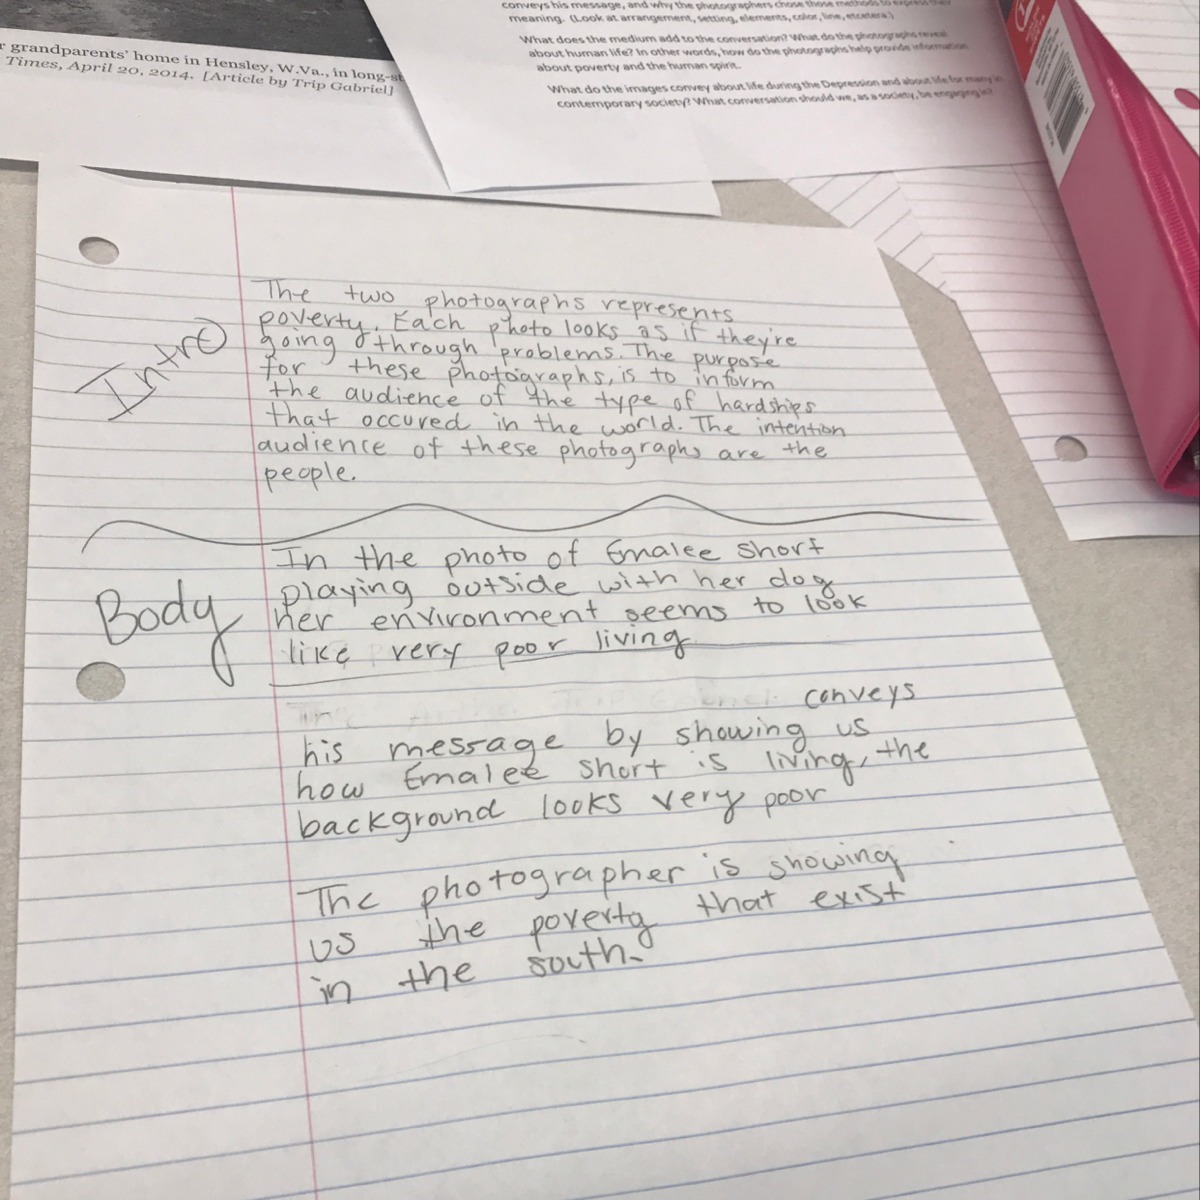 conveys his message, and why the photographers chose those methods to express their
meaning. (Look at arrangement, setting, elements, color, line, etcetera.)
What does the medium add to the conversation? What do the photographs reveal
about human life? In other words, how do the photographs help provide information
about poverty and the human spirit.
What do the images convey about life during the Depression and about life for many in
contemporary society? What conversation should we, as a society, be engaging in?
r grandparents' home in Hensley, W.Va., in long-st
Times, April 20, 2014. [Article by Trip Gabriel]
Intro
The two photographs represents
poverty. Each photo looks as if they're
going through problems. The purpose
for these photographs, is to inform
the audience of the type of hardships
that occured in the world. The intention
audience of these photographs are the
people.
Body
In the photo of Emalee Short
playing outside with her dog
her environment seems to look
like very poor living
conveys
his message by showing us
how Emalee Short is living, the
background looks very poor
The photographer is showing
us the poverty that exist
in the south.